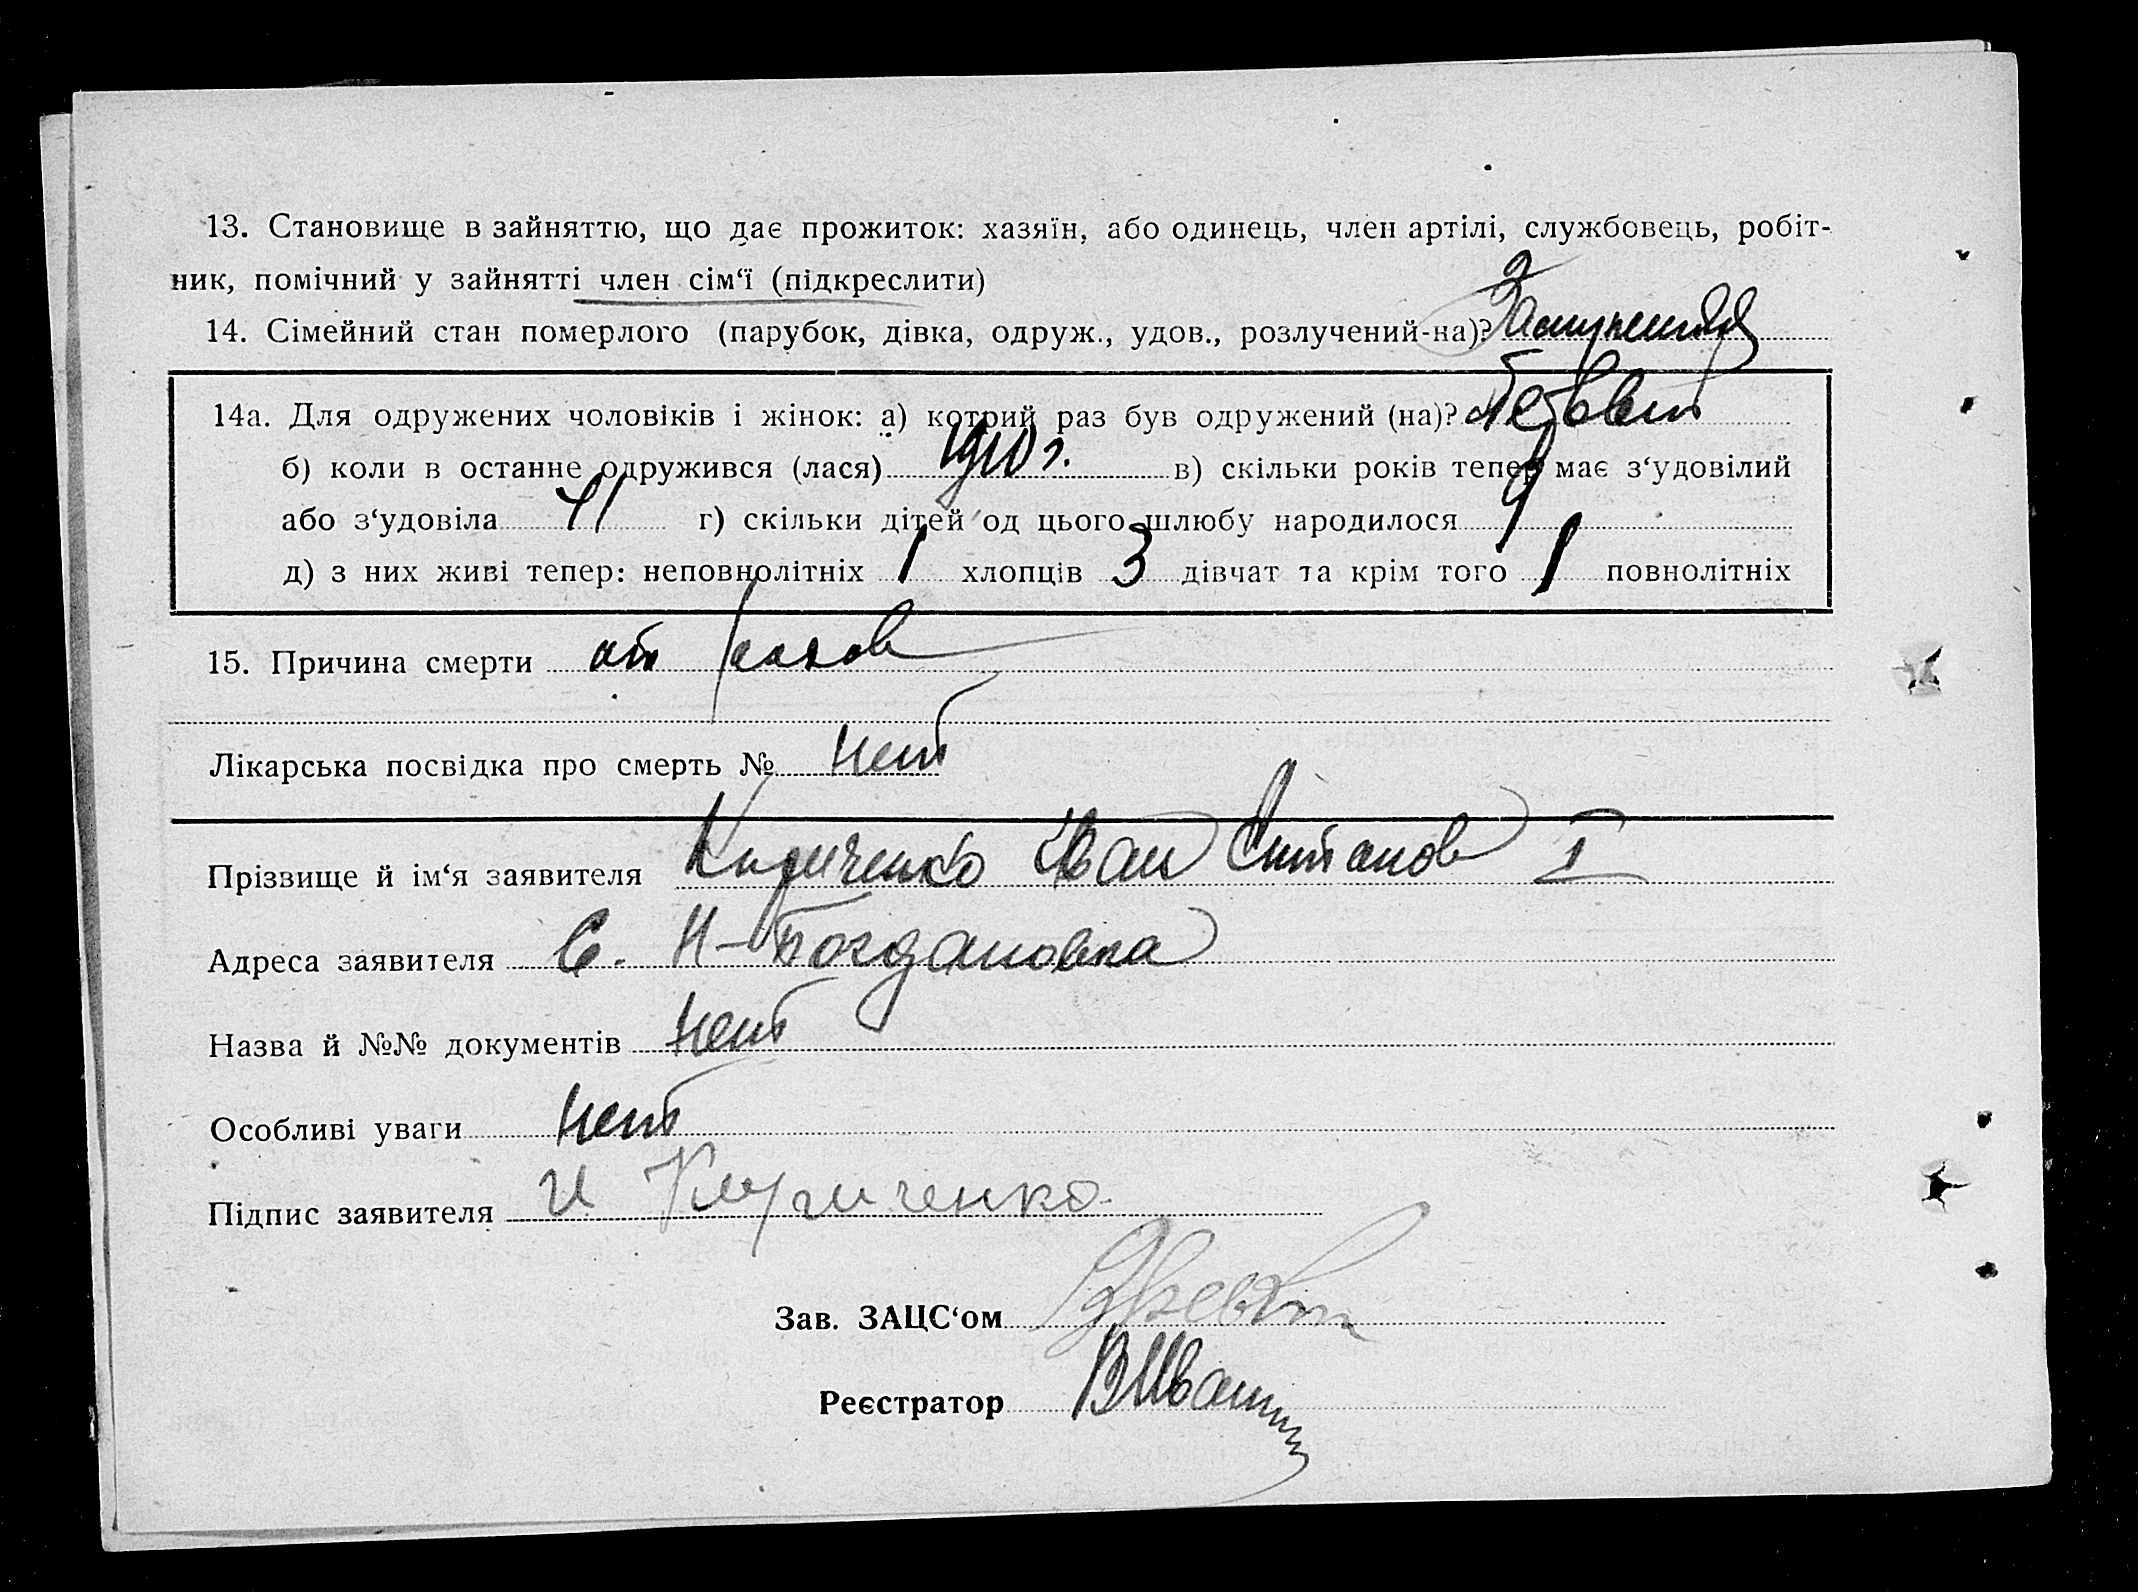 13. Становище в зайняттю, що дає прожиток: хазяїн, або одинець, член артілі, службовець, робіт-
ник, помічний у зайнятті член сім‘ї (підкреслити)
14. Сімейний стан померлого (парубок, дівка, одруж., удов., розлучений-на)?
14а. Для одружених чоловіків і жінок: а) котрий раз був одружений (на)?
б) коли в останне одружився (лася) 1910 г. в) скільки років тепер має з‘удовілий
або з‘удовіла 41 г) скільки дітей од цього шлюбу народилося 9
д) з них живі тепер: неповнолітніх 1 хлопців 3 дівчат та крім того 1 повнолітніх
15. Причина смерти от родов
Лікарська посвідка про смерть № нет
Прізвище й ім‘я заявителя Кириченко Иван Степанов I
Адреса заявителя С. Н-Богдановка
Назва й №№ документів нет
Особливі уваги нет
Підпис заявителя И Кириченко
Зав. ЗАЦС‘ом
Реєстратор